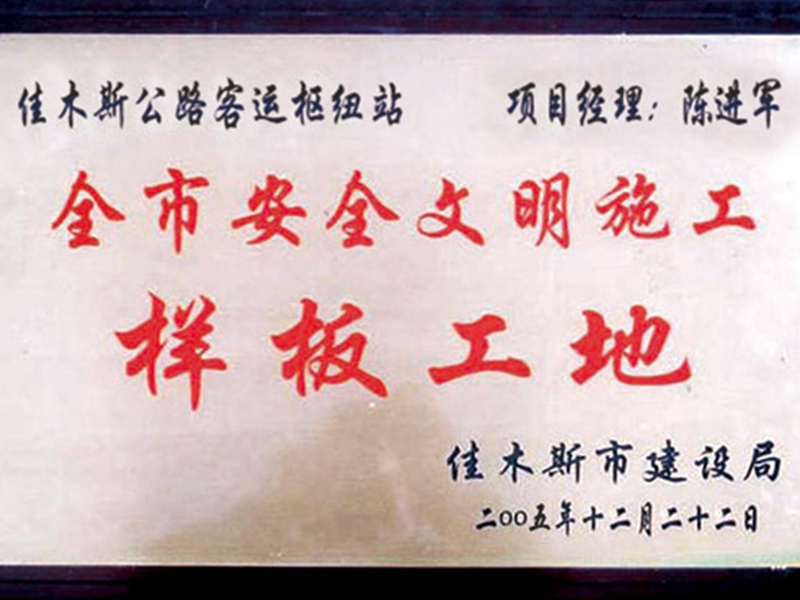 佳木斯公路客运枢纽站 项目经理：陈进军
全市安全文明施工
样板工地
佳木斯市建设局
二00五年十二月二十二日